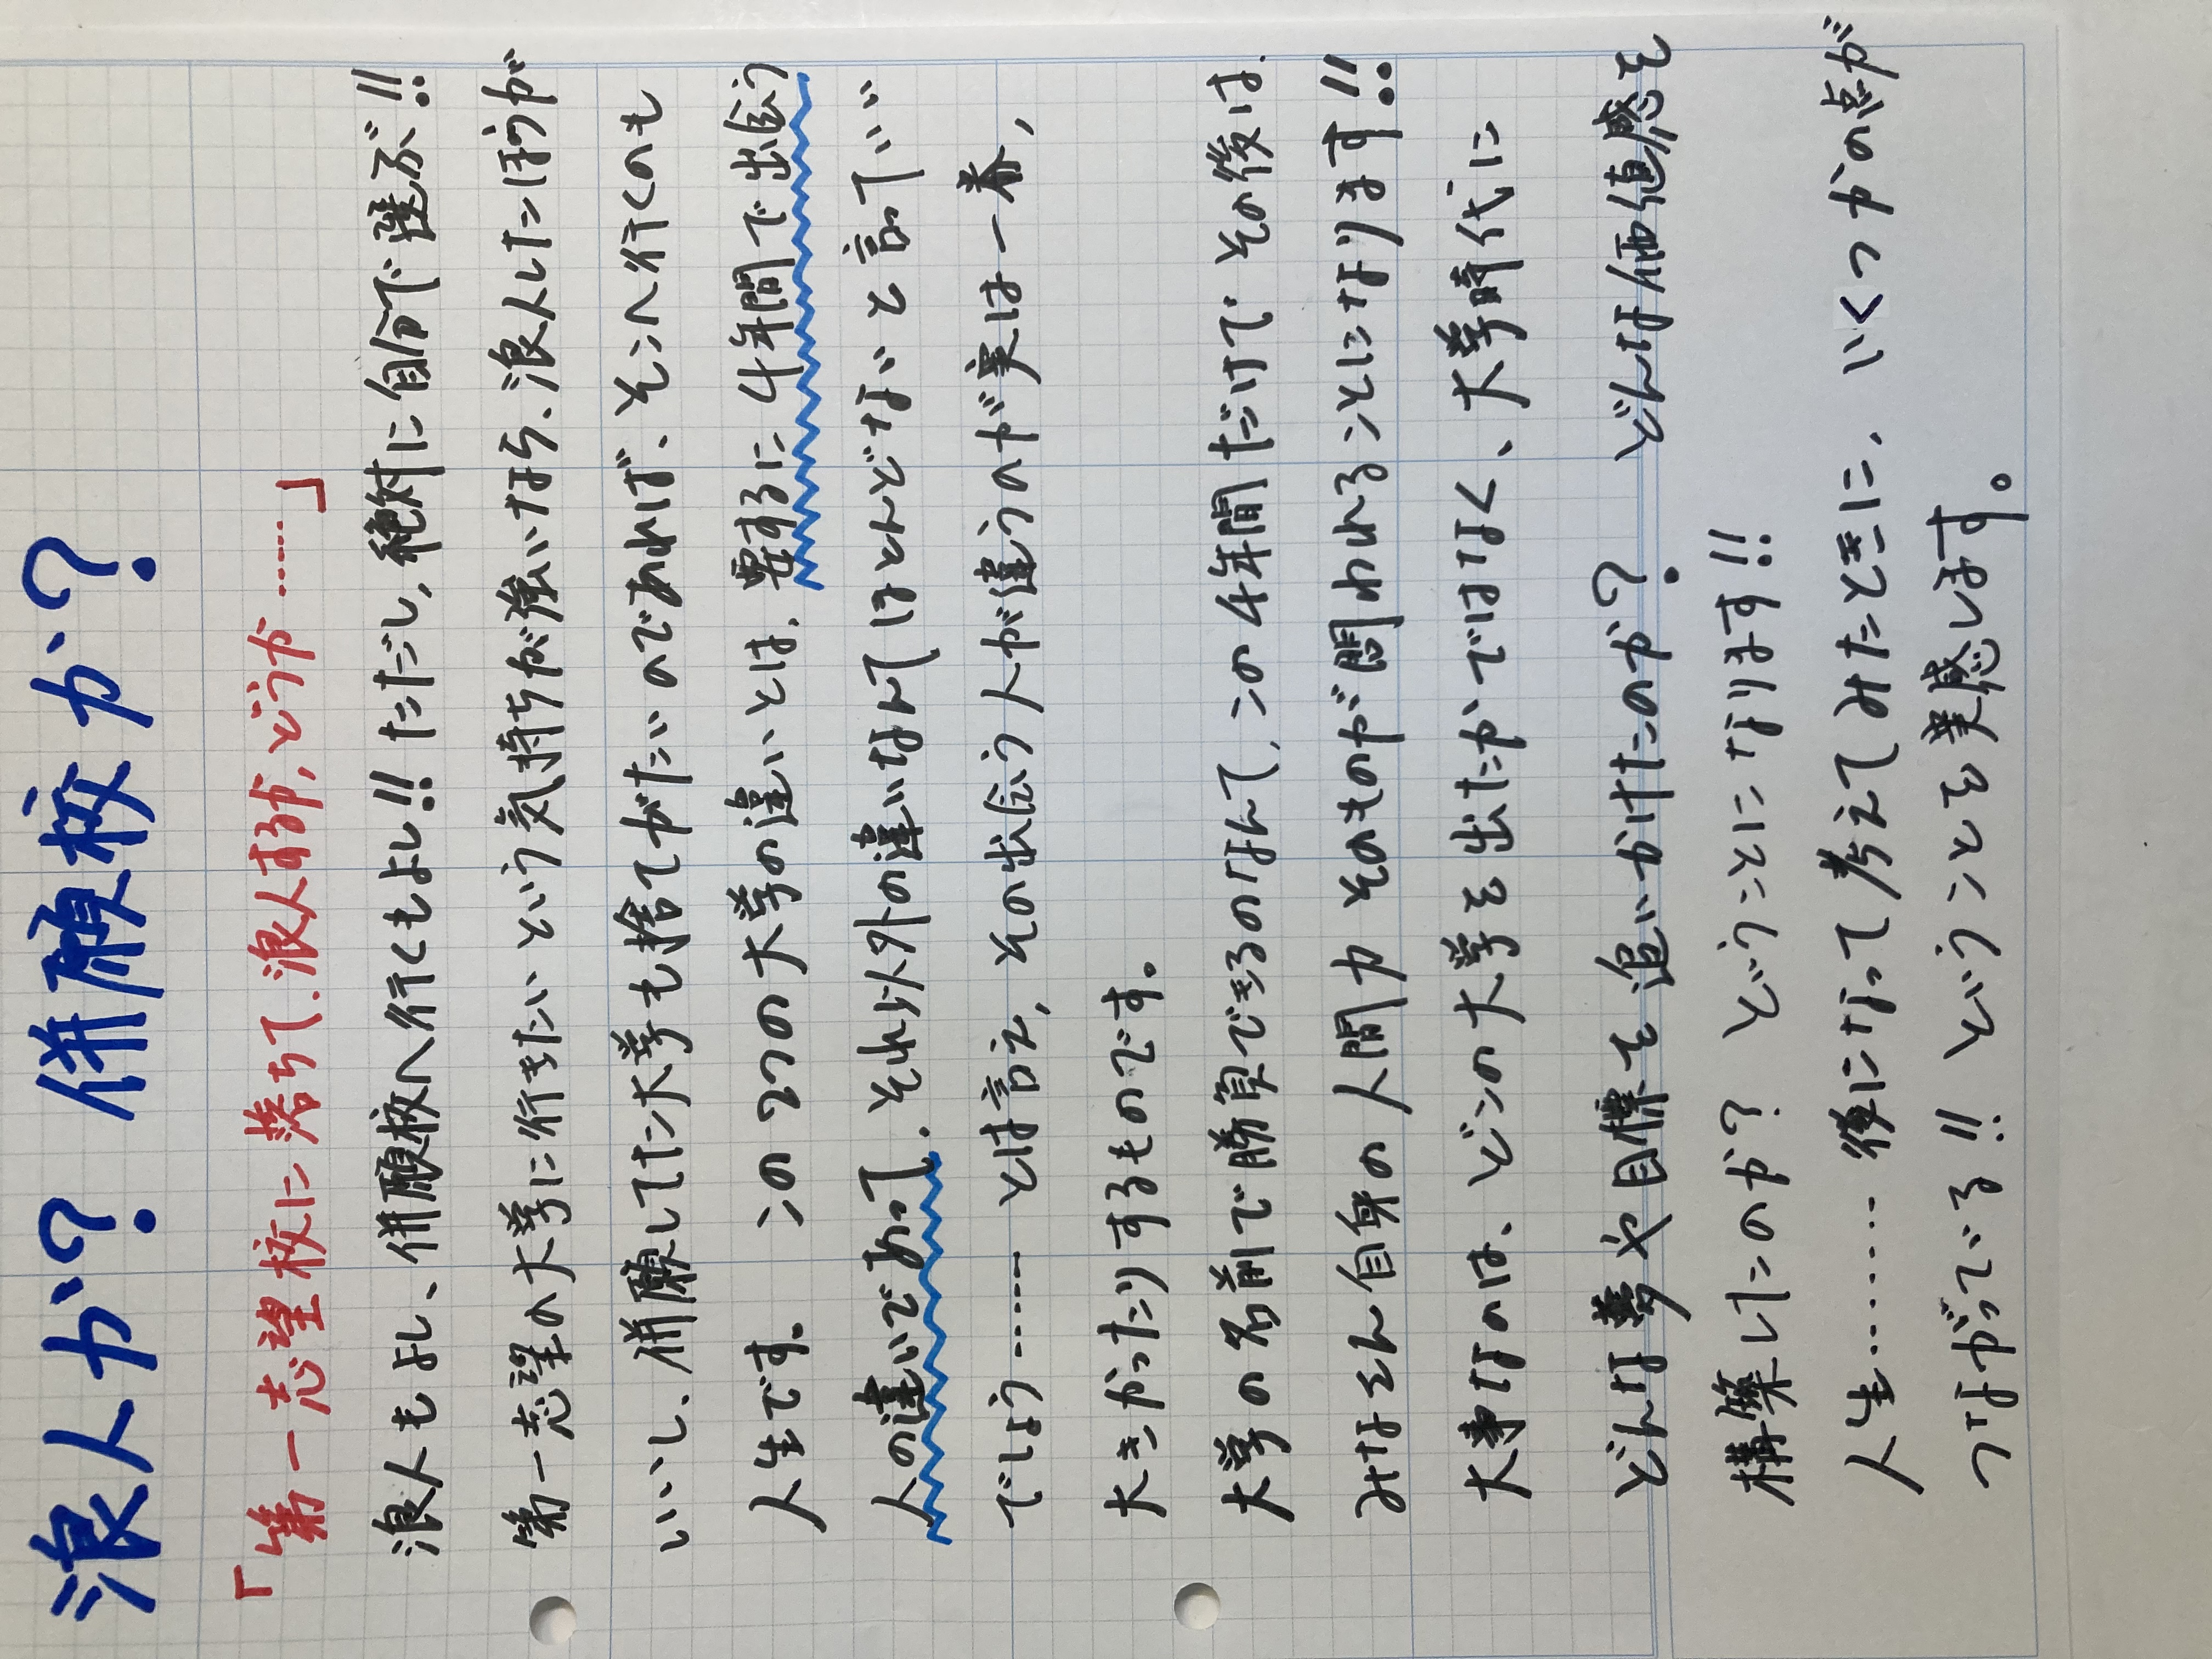 浪人か? 併願校か?
「第一志望校に落ちて、浪人するか、どうか……」
浪人もよし、併願校へ行くもよし!! ただし、絶対に自分で選ぶ!!
第一志望の大学に行きたいという気持ちが強いなら、浪人したほうが
いいし、併願してた大学も捨てがたいのであれば、そこへ行くのも
人生です。 この2つの大学の違いとは、要するに4年間で出会う
人の違いであって、それ以外の違いなんてほとんどないと言っていい
でしょう…… とは言え、その出会う人が違うのが実は一番、
大きかったりするものです。
大学の名前で勝負できるのなんて、この4年間だけで、その後は、
みなさん自身の人間力そのものが問われることになります!!
大事なのは、どこの大学を出たかではなく、大学時代に
どんな夢や目標を追いかけたのか? どんな価値感を
構築したのか? ということになります!!
人生…… 後になって考えてみたときに、いくつかの点が
つながっている!! ということを実感します。